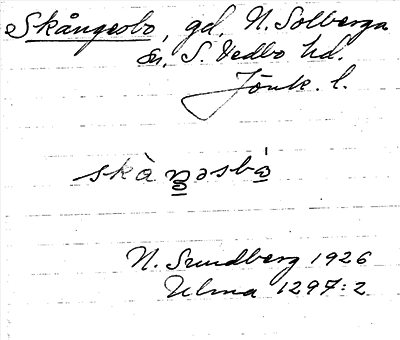 Skångesbo, gd. N. Solberga
sn. S. Vedbo hd.
Jönk. l.
N. Sundberg 1926
Ulma 1297:2